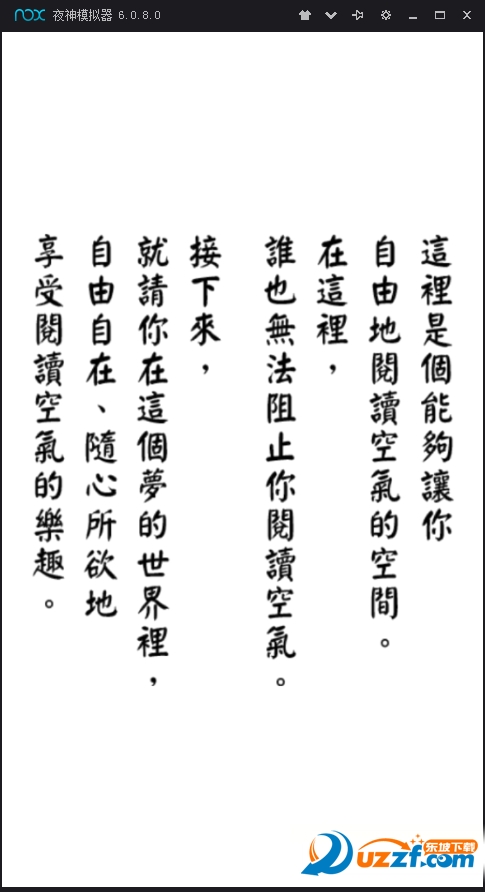 nox 夜神模拟器 6.0.8.0
這裡是個能夠讓你
自由地閱讀空氣的空間。
在這裡，
誰也無法阻止你閱讀空氣。
接下來，
就請你在這個夢的世界裡，
自由自在、隨心所欲地
享受閱讀空氣的樂趣。
东坡下载
uzzf.com